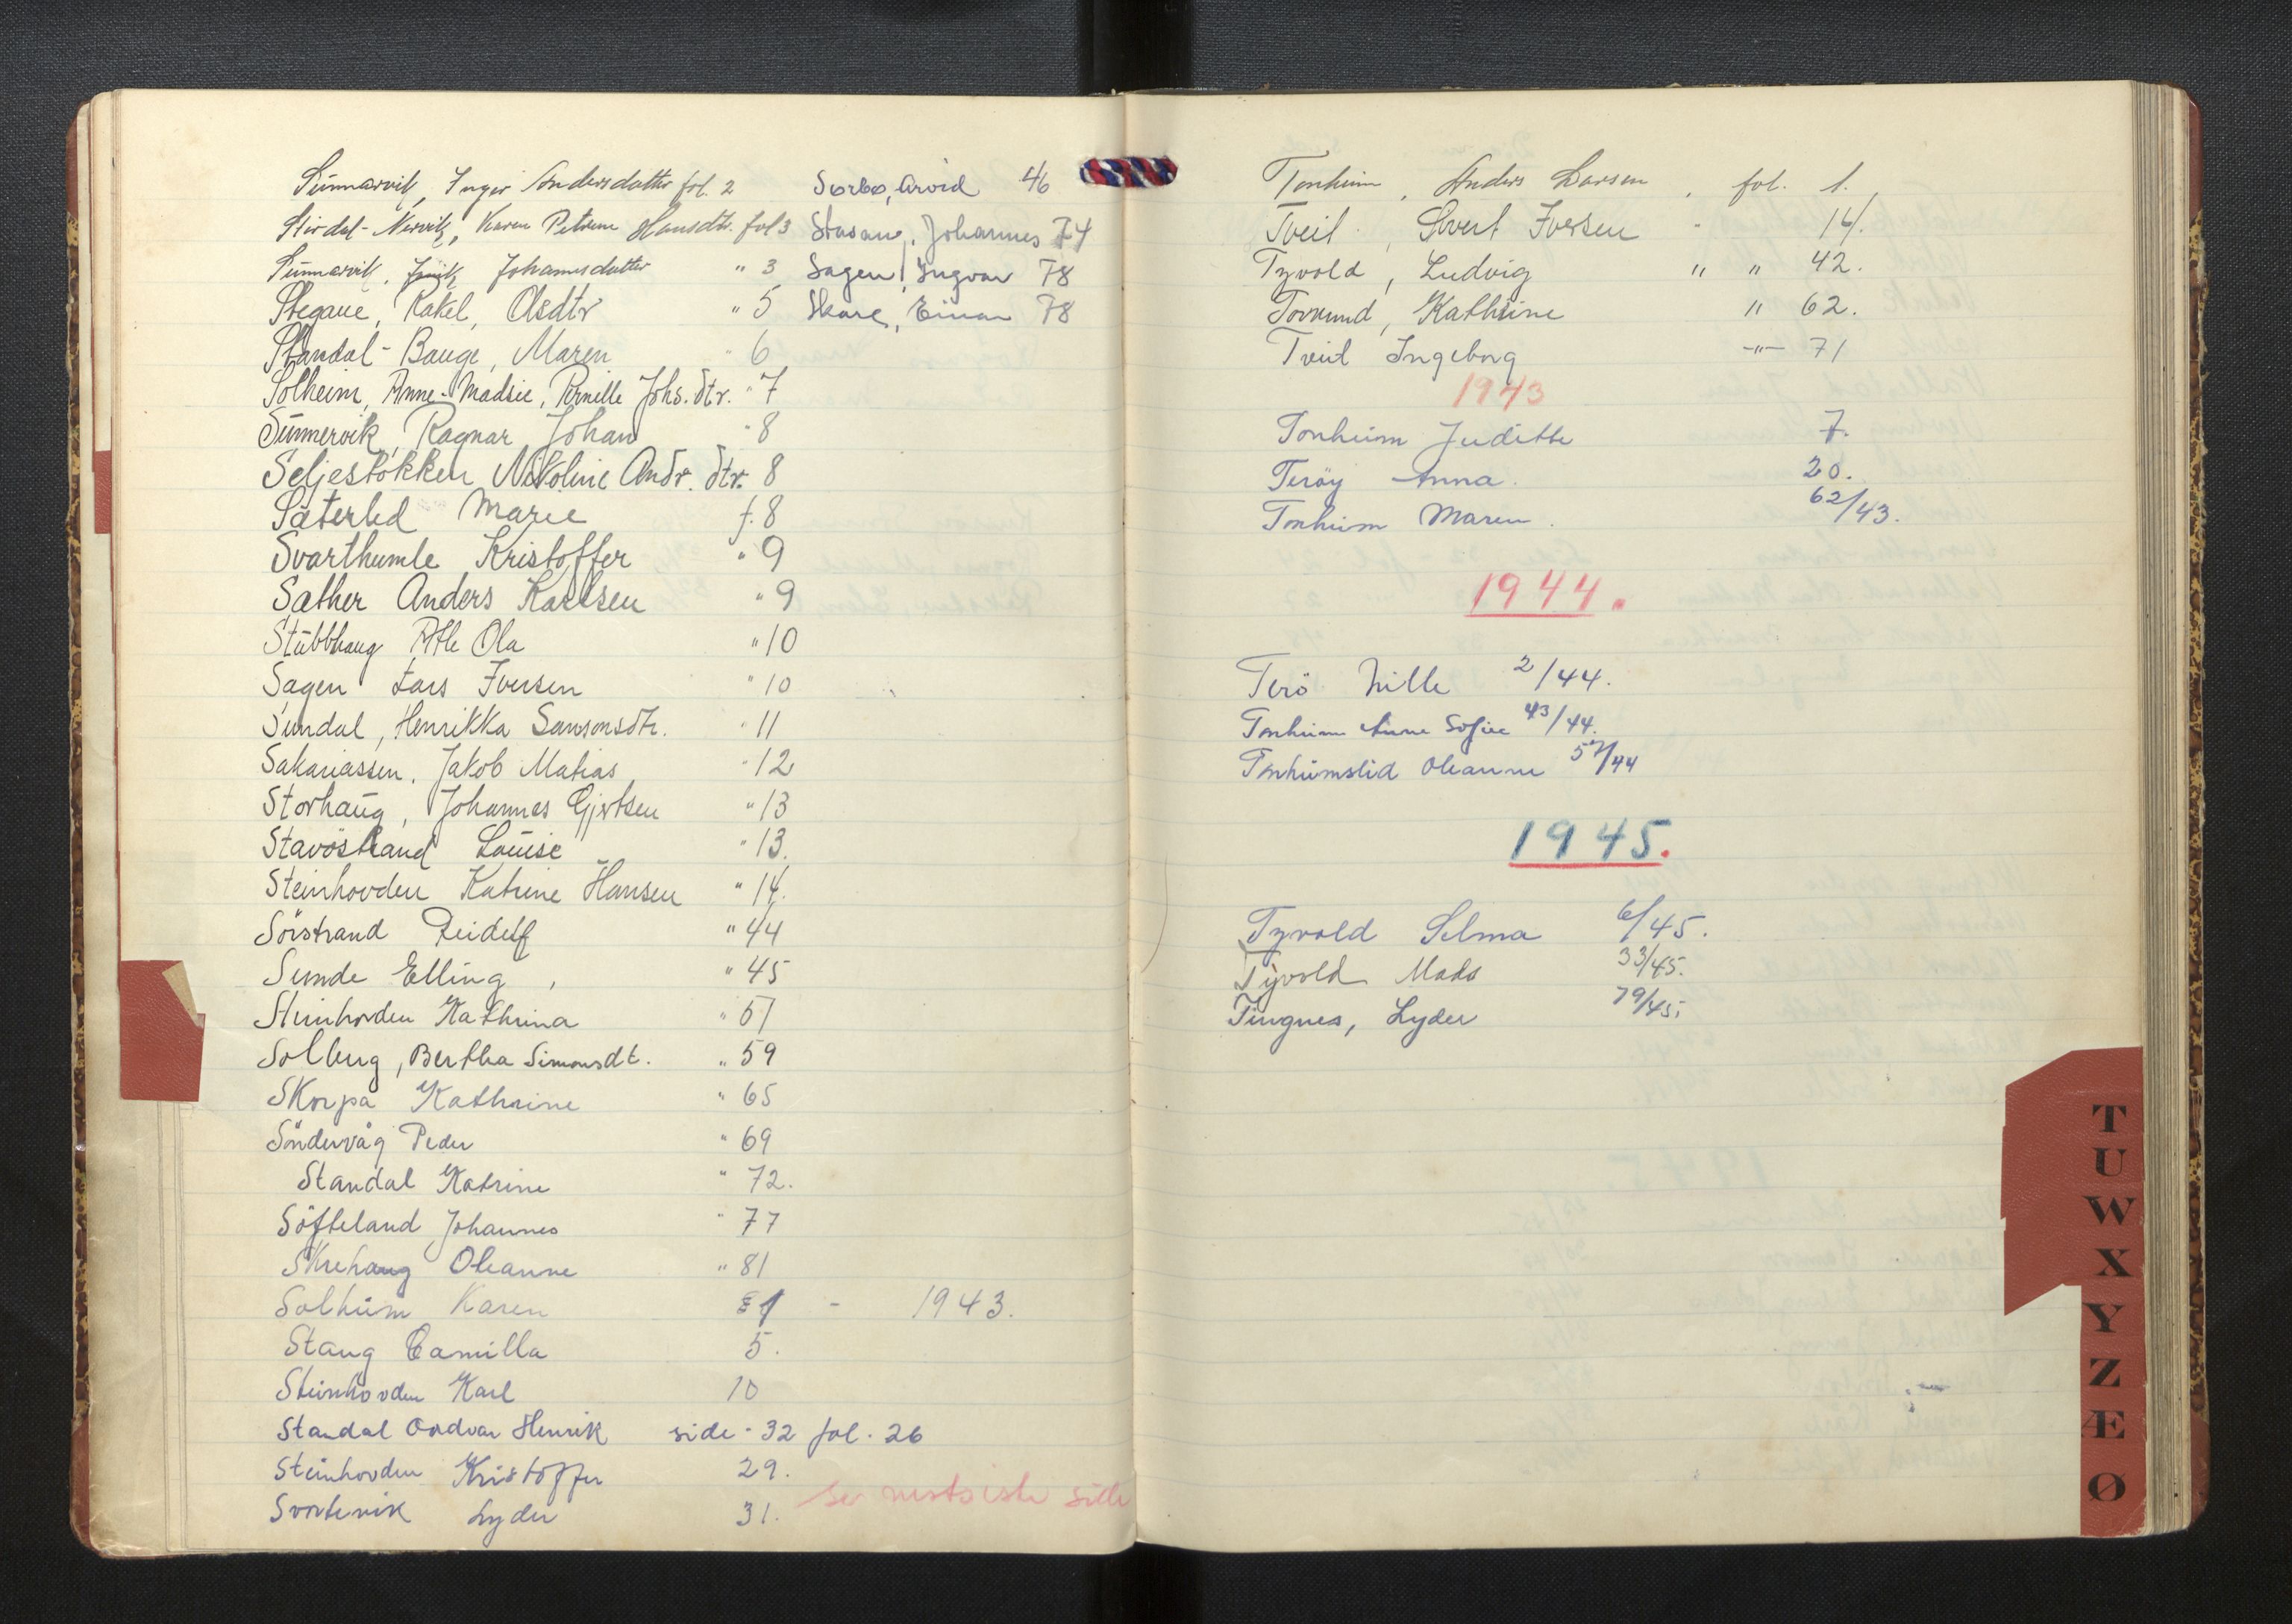 Sünnarvik, Inger Andersdatter fol. 2
Stirdal-Nervik, Karen Petrine Hansdtr. fol 3
Sünnarvik, Johannesdatter " 3
Stegane, Rakel, Olsdtr " 5
Standal-Bauge, Maren " 6
Solheim, Anne-Madsie, Pernille Johs. dtr. " 7
Sünnervik, Ragnar Johan " 8
Seljestökken Nikoline Andr. dtr. 8
Säterlid Marie f. 8
Svarthumle Kristoffer " 9
Sæther Anders Karlsen " 9
Stübbhaug Atle Ola " 10
Sagen Lars Iversen " 10
Sundal, Henrikka Samsonsdtr. " 11
Sakariassen, Jakob Matias " 12
Storhaüg, Johannes Gjertsen " 13
Stavöstrand Loüise " 13.
Steinhovden Katrine Hansen " 14.
Sörstrand Reidulf " 44
Sunde Elling, " 45
Steinhovden Kathrina " 57
Solberg, Bertha Simonsdt. " 59
Skorpa Kathrine " 65
Söndervåg Peder " 69
Standal Katrine " 72.
Söfteland Johannes " 77
Skrehaug Oleanne " 81
Solheim Karen 1 - 1943.
Stang Camilla 5.
Steinhovden Karl 10
Standal Oddvar Henrik side - 32 fol. 26
Steinhovden Kristoffer 29.
Svortevik Lyder 31.
se nestsiste side
Sørbø, Arvid 46
Stasane, Johannes 74
Sagen, Ingvar 78
Skare, Einar 78
Tonheim, Anders Larsen, fol. 1.
Tveit, Sivert Iversen " 14.
Tyvold, Ludvig " " 42.
Torsund, Kathrine " 62.
Tveit Ingeborg -"- 71
1943
Tonheim Judithe 7.
Teröy Anna. 20.
Tonheim Maren. 62/43.
1944.
Terö Nille 2/44.
Tonheim Anne Sofie 43/44.
Tonheimslid Oleanne 57/44
1945.
Tyvold Selma 6/45.
Tyvold Mads 33/45.
Tingnes, Lyder 79/45.
T
U
W
X
Y
Z
Æ
Ø